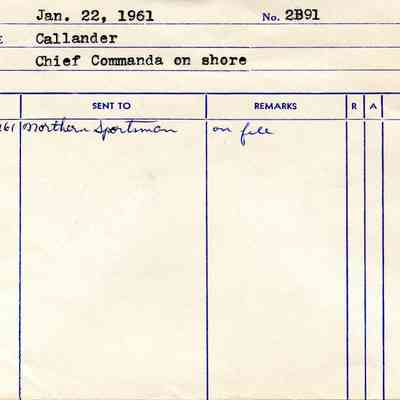 Jan. 22, 1961 No. 2B91
E Callander
Chief Commanda on shore
SENT TO REMARKS R A
61 Northern Sportsman on file